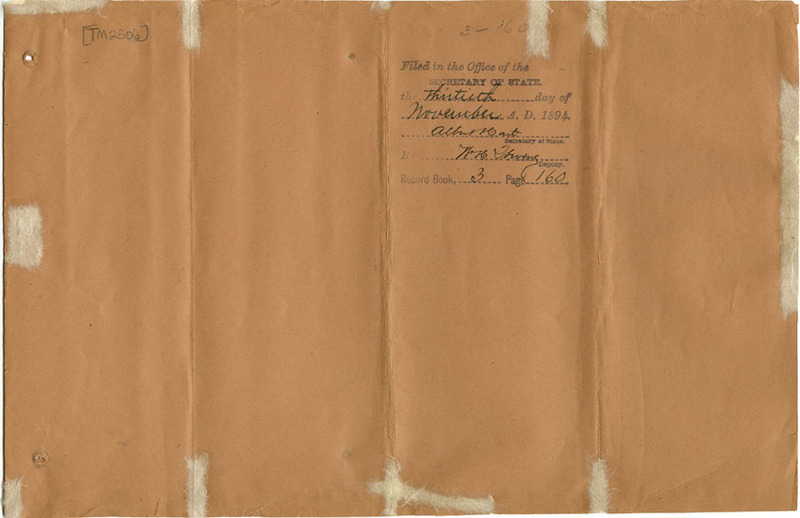 [TM2506]
3-160
Filed in the Office of the
SECRETARY OF STATE,
the thirtieth day of
November A. D. 1894.
Albert Hart
Secretary of State.
B
Wm H
Deputy.
Record Book, 3 Page 160